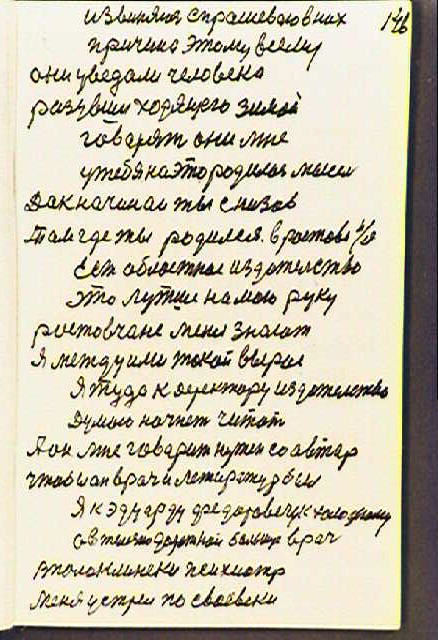 146
извиняя спрашеваю в них
причина этому всему
они уведали человека
разувши ходящего зимой
говарят они мне
у тебя на это родилса мысеи
Дак начинаи ты снизов
Там где ты родился. в ростове н/д
Ест областное издателство
это лутше на мою руку
ростовчане меня знают
Я между ими такой вырос
Я туда к деректору издателства
думаю начнет читат
А он мне говарит нужен соавтар
чтобы он врач и летиратур был
Я к эдуарду федотавечук
врач
в полоклинеки психиатр
меня устреи по своевеки